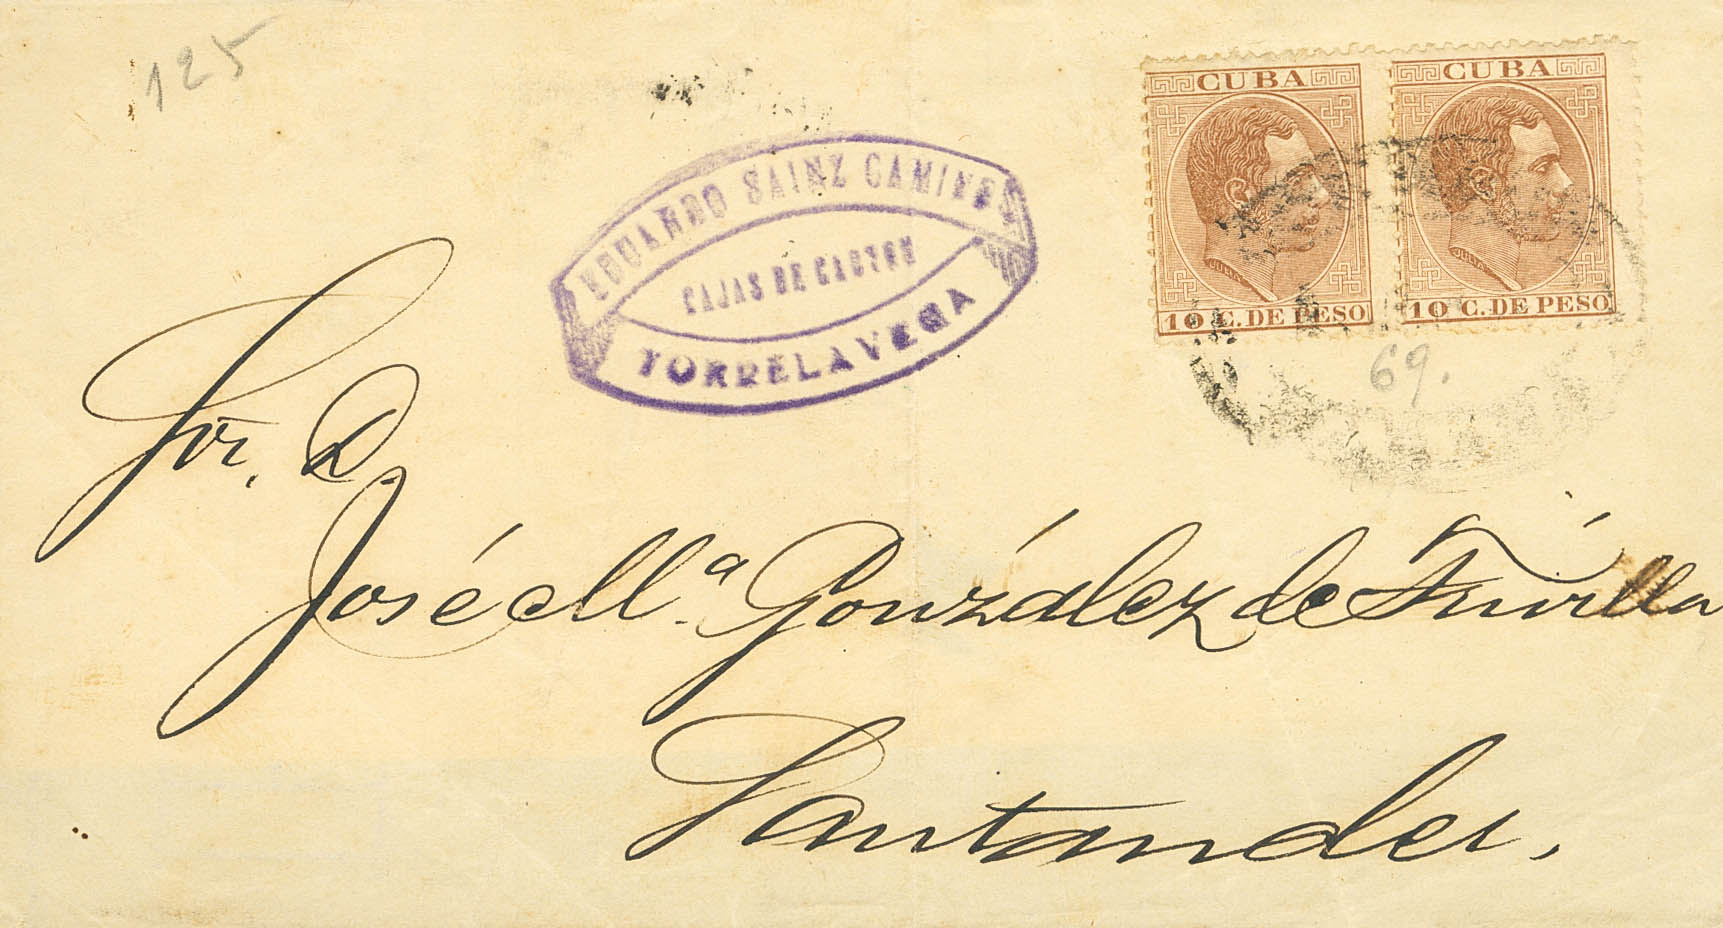 125
CUBA
10 C. DE PESO
CUBA
10 C. DE PESO
JULIA
JULIA
69.
EDUARDO SAINZ CAMINO
CAJAS DE CARTON
TORRELAVEGA
Sor. D
José M.ª González de
Santander.